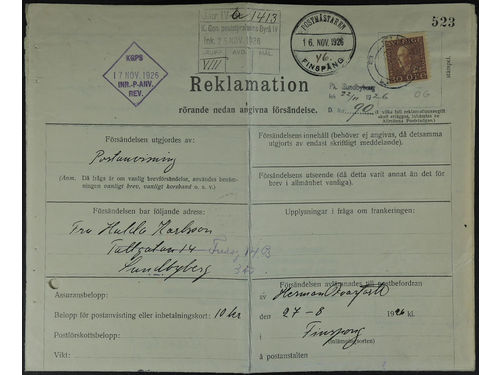 Gen. Postst:s Byrå IV
Ink. 25 NOV. 1926
VIII
POSTMÄSTAREN
16. NOV. 1926
FINSPÅNG
523
KGPS
17 NOV. 1926
INR.-P-ANV.
REV.
SVERIGE
30 ÖRE
Reklamation
rörande nedan angivna försändelse.
Pk. Sundbyberg
22/11 1926
D. Nr 90
Försändelsen utgjordes av:
Postanvisning
(Anm. Då fråga är om vanlig brevförsändelse, användes benämningen vanligt brev, vanligt korsband o. s. v.)
Försändelsens innehåll (behöver ej angivas, då detsamma
utgjorts av endast skriftligt meddelande).
Försändelsens utseende (då detta varit annat än det för
brev i allmänhet vanliga).
Försändelsen bar följande adress:
Fru Hulda Karlsson
Tallgatan 14
Sundbyberg
Upplysningar i fråga om frankeringen:
Assuransbelopp:
Belopp för postanvisning eller inbetalningskort: 10 kr
Postförskottsbelopp:
Vikt:
Försändelsen avlämnades till postbefordran
av Herman
den 27-8 1926 kl.
i Finspong
(inlämningsorten)
å postanstalten